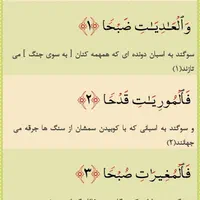 وَالْعَادِيَاتِ ضَبْحًا ﴿١﴾
سوگند به اسبان دونده ای که همهمه کنان [ به سوی جنگ ] می
تازند(۱)
فَالْمُورِيَاتِ قَدْحًا ﴿٢﴾
و سوگند به اسبانی که با کوبیدن سمشان از سنگ ها جرقه می
جهانند(۲)
فَالْمُغِيرَاتِ صُبْحًا ﴿٣﴾